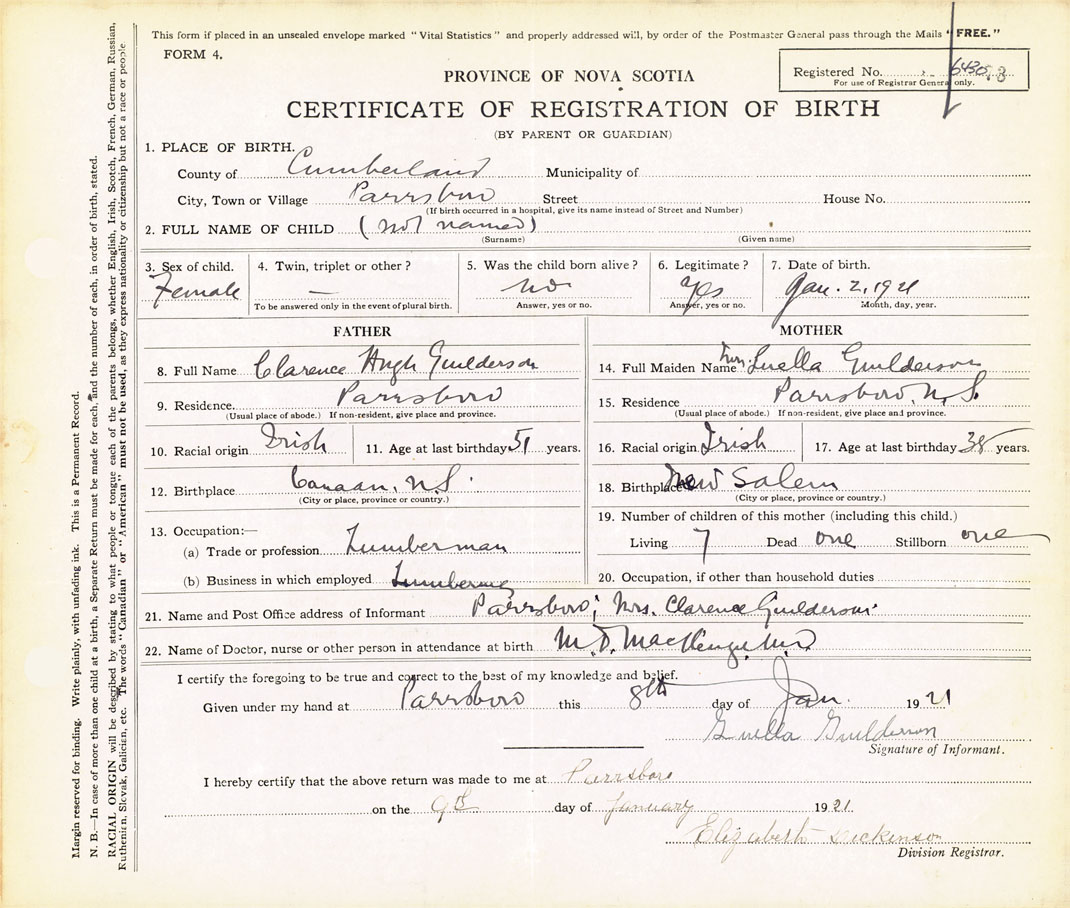 This form if placed in an unsealed envelope marked "Vital Statistics" and properly addressed will, by order of the Postmaster General pass through the Mails "FREE."
FORM 4.
Registered No. 6430
For use of Registrar General only.
PROVINCE OF NOVA SCOTIA
CERTIFICATE OF REGISTRATION OF BIRTH
(BY PARENT OR GUARDIAN)
1. PLACE OF BIRTH.
County of Cumberland Municipality of
City, Town or Village Parrsboro Street House No.
(If birth occurred in a hospital, give its name instead of Street and Number)
2. FULL NAME OF CHILD (not named)
(Surname) (Given name)
3. Sex of child. 4. Twin, triplet or other? 5. Was the child born alive? 6. Legitimate? 7. Date of birth.
Female — no yes Jan. 2, 1921
To be answered only in the event of plural birth. Answer, yes or no. Answer, yes or no. Month, day, year.
FATHER
8. Full Name Clarence Hugh Guilderson
9. Residence Parrsboro
(Usual place of abode.) If non-resident, give place and province.
10. Racial origin Irish 11. Age at last birthday 51 years.
12. Birthplace Canaan, N.S.
(City or place, province or country.)
13. Occupation:—
(a) Trade or profession Lumberman
(b) Business in which employed Lumbering
MOTHER
14. Full Maiden Name Mrs. Luella Guilderson
15. Residence Parrsboro, N.S.
(Usual place of abode.) If non-resident, give place and province.
16. Racial origin Irish 17. Age at last birthday 38 years.
18. Birthplace New Salem
(City or place, province or country.)
19. Number of children of this mother (including this child.)
Living 7 Dead one Stillborn one
20. Occupation, if other than household duties
21. Name and Post Office address of Informant Parrsboro, Mrs. Clarence Guilderson
22. Name of Doctor, nurse or other person in attendance at birth M.D. MacKenzie M.D.
I certify the foregoing to be true and correct to the best of my knowledge and belief.
Given under my hand at Parrsboro this 8th day of Jan. 1921
Luella Guilderson
Signature of Informant.
I hereby certify that the above return was made to me at Parrsboro
on the 9th day of January 1921
Elizabeth Dickinson
Division Registrar.
Margin reserved for binding. Write plainly, with unfading ink. This is a Permanent Record.
N. B.—In case of more than one child at a birth, a Separate Return must be made for each, and the number of each, in order of birth, stated.
RACIAL ORIGIN will be described by stating to what people or tongue each of the parents belongs, whether English, Irish, Scotch, French, German, Russian,
Ruthenian, Slovak, Galician, etc. The words "Canadian" or "American" must not be used, as they express nationality or citizenship but not a race or people